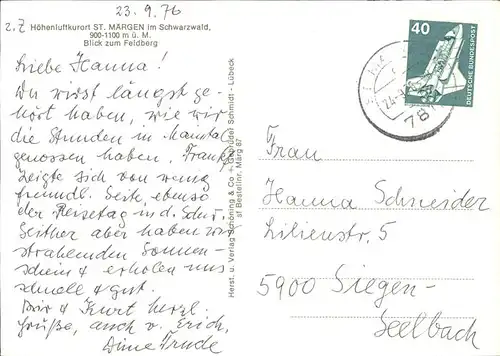 23.9.76
z.Z
Höhenluftkurort ST. MÄRGEN im Schwarzwald,
900-1100 m ü. M.
Blick zum Feldberg
Liebe Hanna!
Du wirst längst ge-
hört haben, wie wir
die Stunden in
genossen haben.
zeigte sich von wenig
freundl. Seite, ebenso
der Reisetag in d. Schw.
Seither aber haben wir
strahlenden Sonnen-
schein & erholen uns
schnell & gut.
Dir & Kurt herzl.
Grüße, auch v. Erich,
Deine Trude
Herst. u. Verlag Schöning & Co + Gebrüder Schmidt - Lübeck
Bestellnr. Märg 87
40
DEUTSCHE BUNDESPOST
Frau
Hanna Schneider
Lilienstr. 5
5900 Siegen-
Seelbach